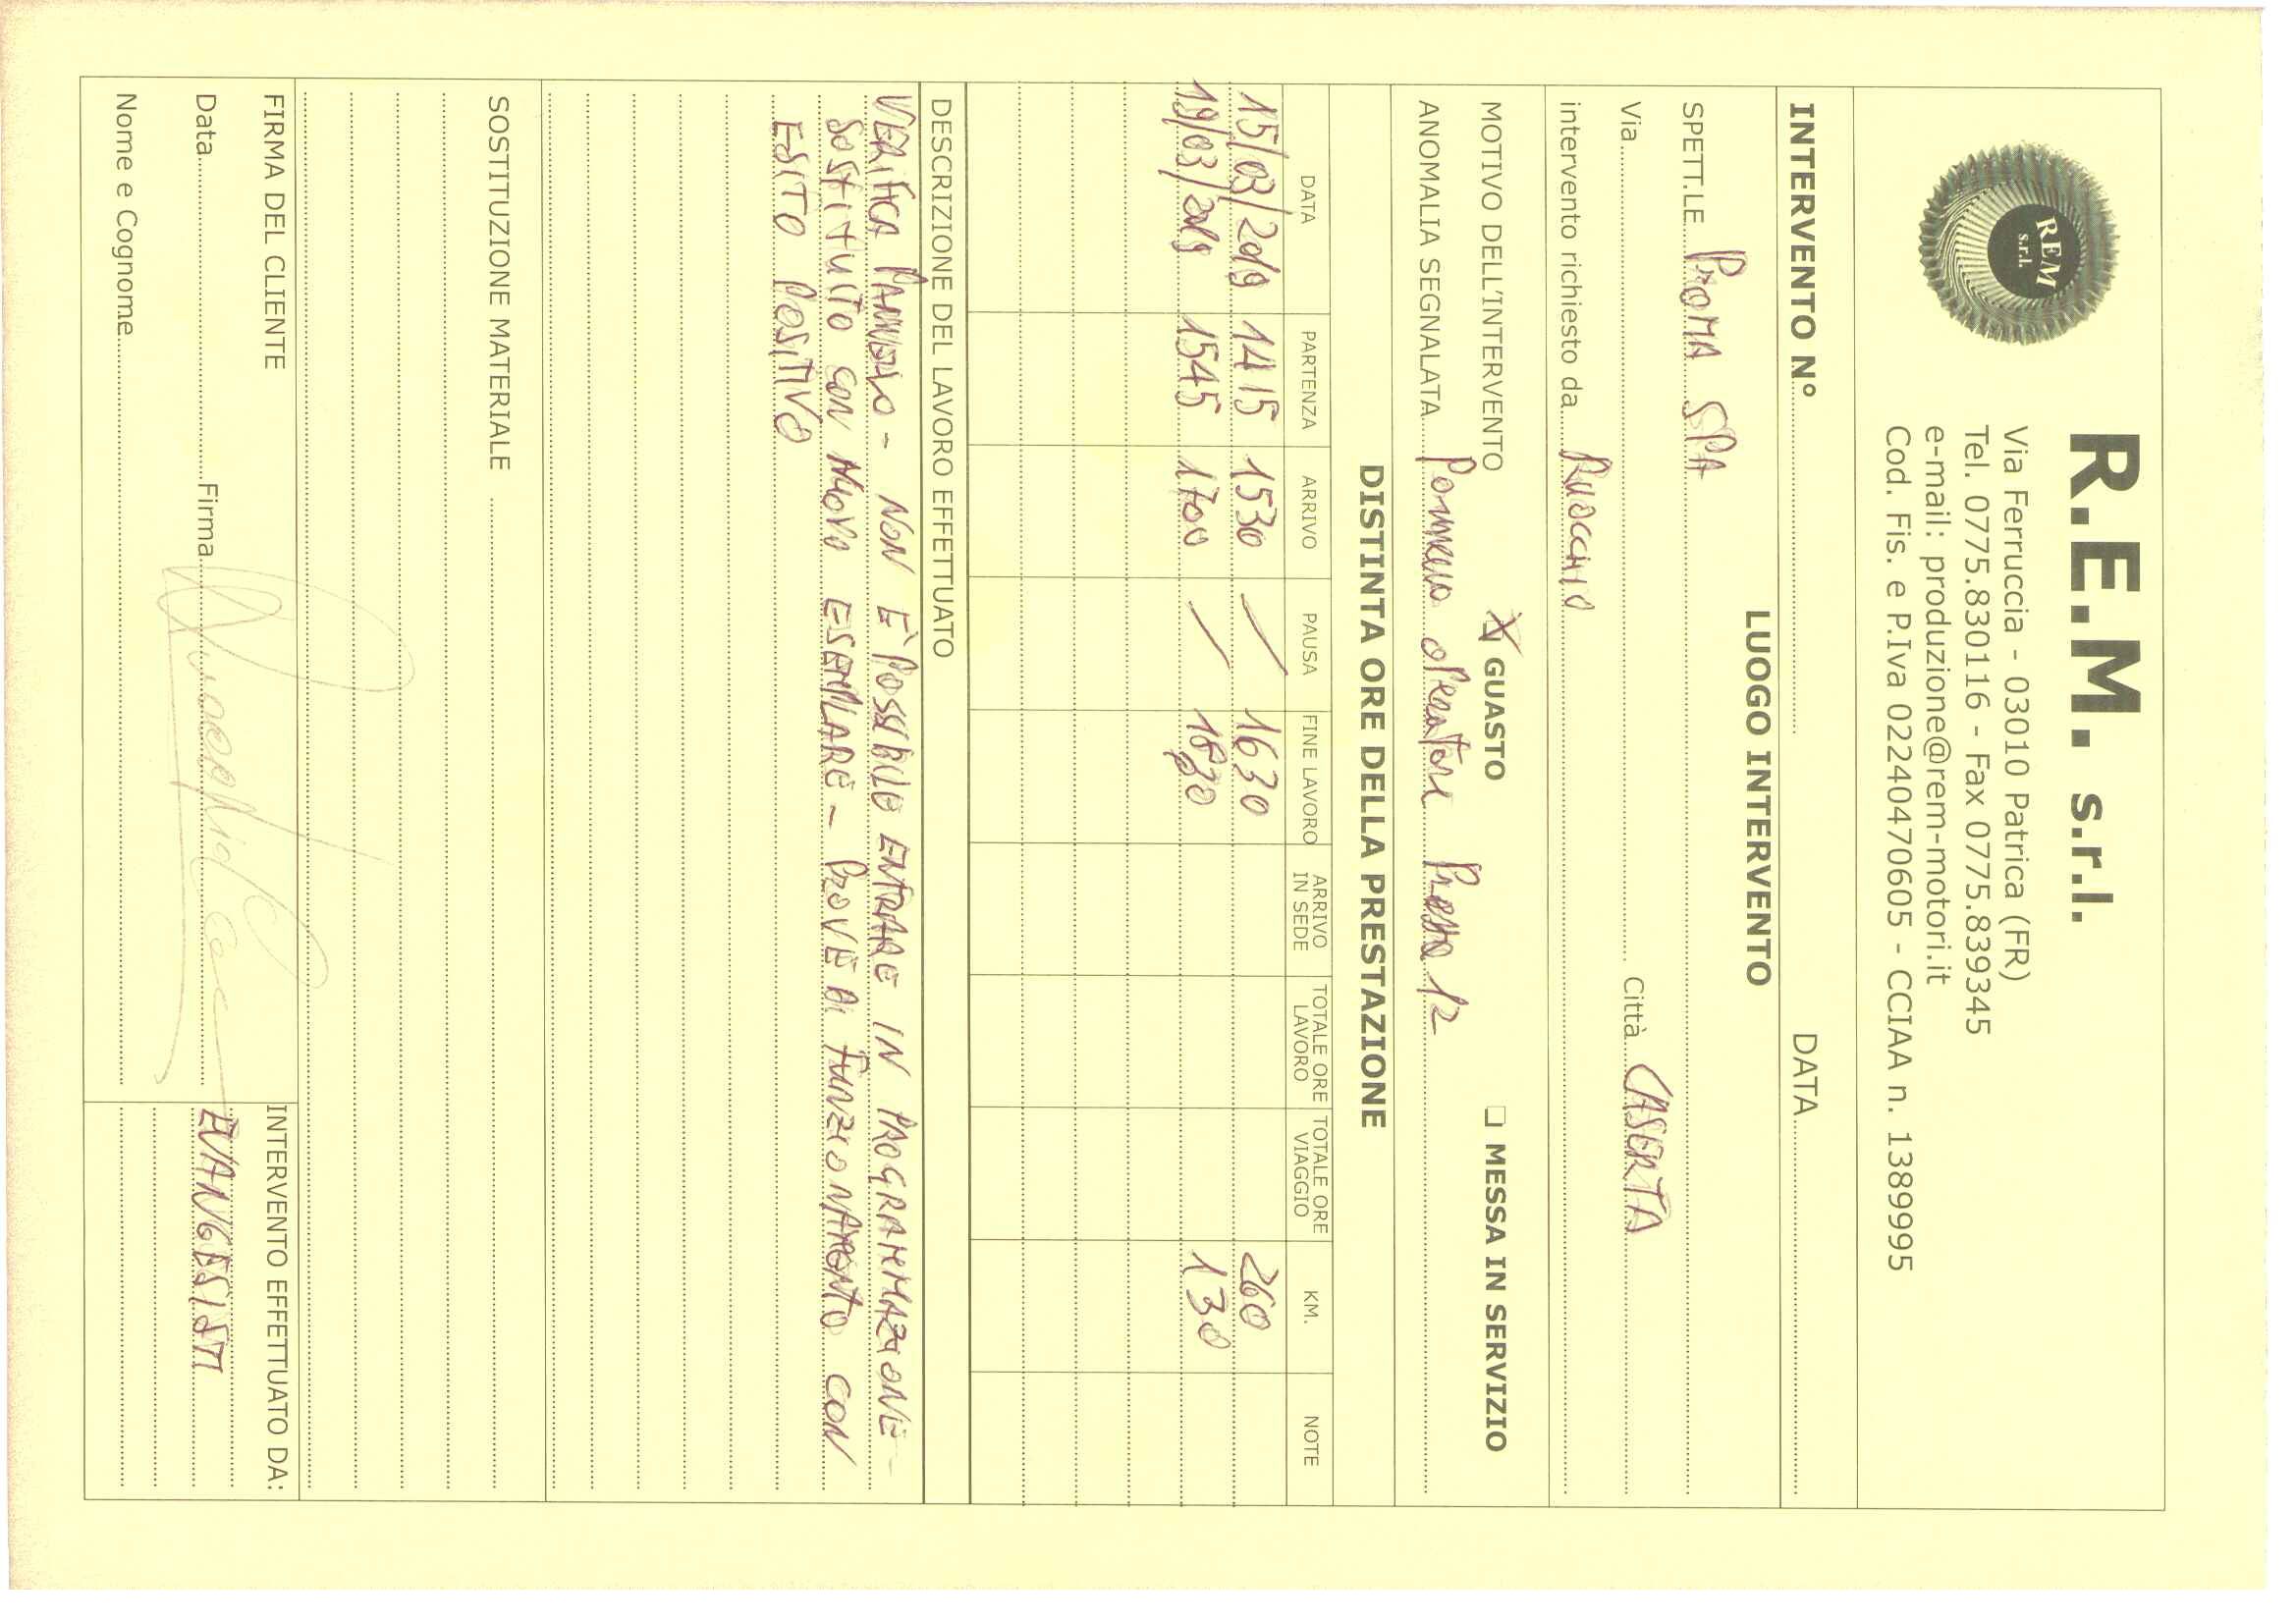 REM
s.r.l.
R.E.M. s.r.l.
Via Ferruccia - 03010 Patrica (FR)
Tel. 0775.830116 - Fax 0775.839345
e-mail: produzione@rem-motori.it
Cod. Fis. e P.Iva 02240470605 - CCIAA n. 1389995
INTERVENTO N° DATA
LUOGO INTERVENTO
SPETT.LE PROMA SPA
Via Città CASERTA
intervento richiesto da RUOCCHIO
MOTIVO DELL'INTERVENTO X GUASTO ❑ MESSA IN SERVIZIO
ANOMALIA SEGNALATA Pannello operatore Pressa 12
DISTINTA ORE DELLA PRESTAZIONE
DATA PARTENZA ARRIVO PAUSA FINE LAVORO ARRIVO IN SEDE TOTALE ORE LAVORO TOTALE ORE VIAGGIO KM. NOTE
15/03/2019 1415 1530 / 1630 260
19/03/2019 1545 1700 / 1830 130
DESCRIZIONE DEL LAVORO EFFETTUATO
VERIFICA PANNELLO - NON È POSSIBILE ENTRARE IN PROGRAMMAZIONE -
SOSTITUITO CON NUOVO ESEMPLARE - PROVE DI FUNZIONAMENTO CON
ESITO POSITIVO
SOSTITUZIONE MATERIALE
FIRMA DEL CLIENTE
INTERVENTO EFFETTUATO DA:
Data Firma
EVANGELISTI
Nome e Cognome